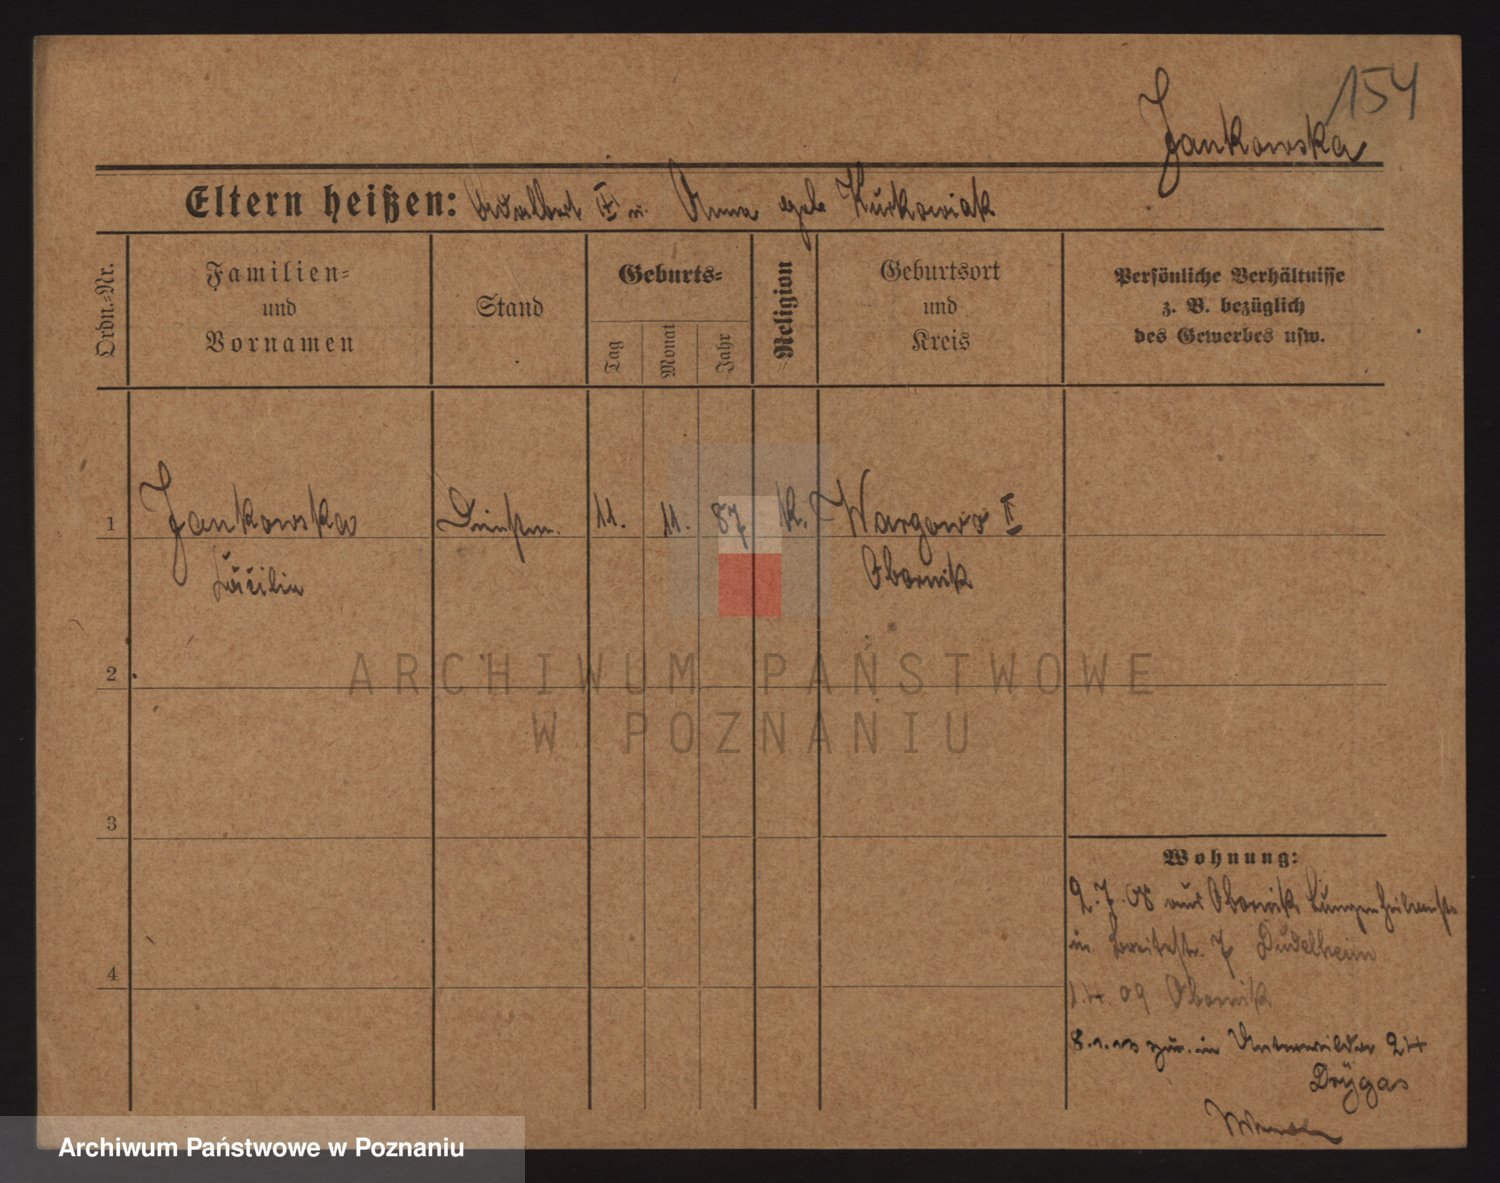 154
Jankowska
Eltern heißen: Adalbert u. Anna geb Kurkowiak
Ordn.=Nr.
Familien=
und
Vornamen
Stand
Geburts=
Tag
Monat
Jahr
Religion
Geburtsort
und
Kreis
Persönliche Verhältnisse
z. B. bezüglich
des Gewerbes usw.
1 Jankowska Dienstm. 11. 11. 87 k. Wargowo II
Cäcilie Obornik
2
3
4
Wohnung:
9.7.08 aus Obornik Lungenheilanst
in Breitestr. 7 Dudelheim
09 Obornik
zur. in Unterwilda 24
Drygas
ARCHIWUM PAŃSTWOWE
W POZNANIU
Archiwum Państwowe w Poznaniu